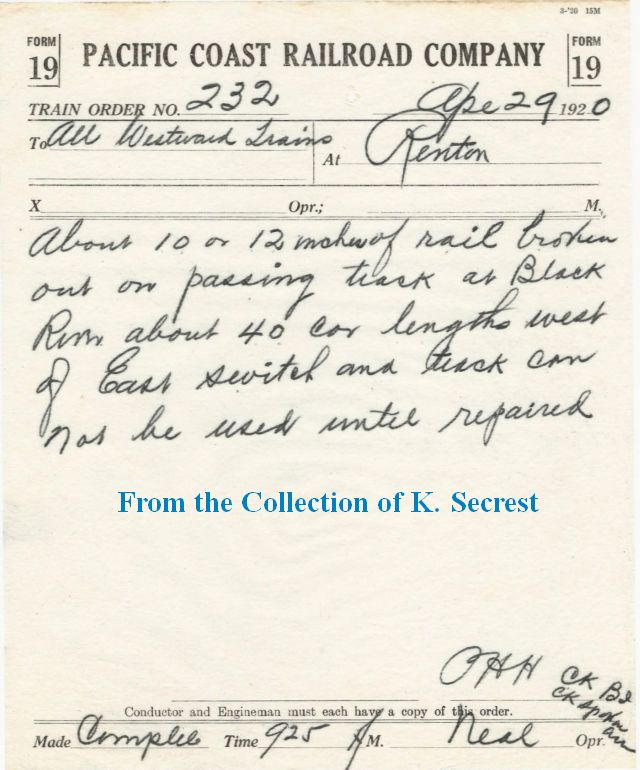 3-'20 15M
FORM 19 PACIFIC COAST RAILROAD COMPANY FORM 19
TRAIN ORDER NO. 232 Apr 29 1920
To All Westward Trains At Renton
X Opr.; M.
About 10 or 12 inches of rail broken
out on passing track at Black
River about 40 car lengths west
of East switch and track can
not be used until repaired
From the Collection of K. Secrest
OHH
CK BI
CK
Conductor and Engineman must each have a copy of this order.
Made Complete Time 925 AM. Neal Opr.